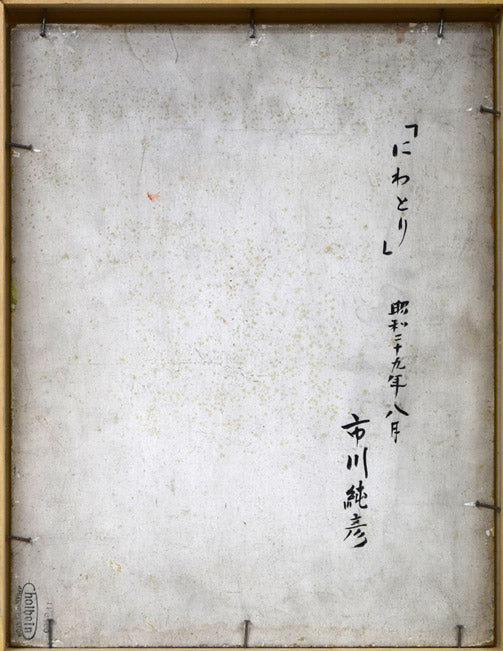 「にわとり」
昭和二十九年八月
市川純彦
holbein